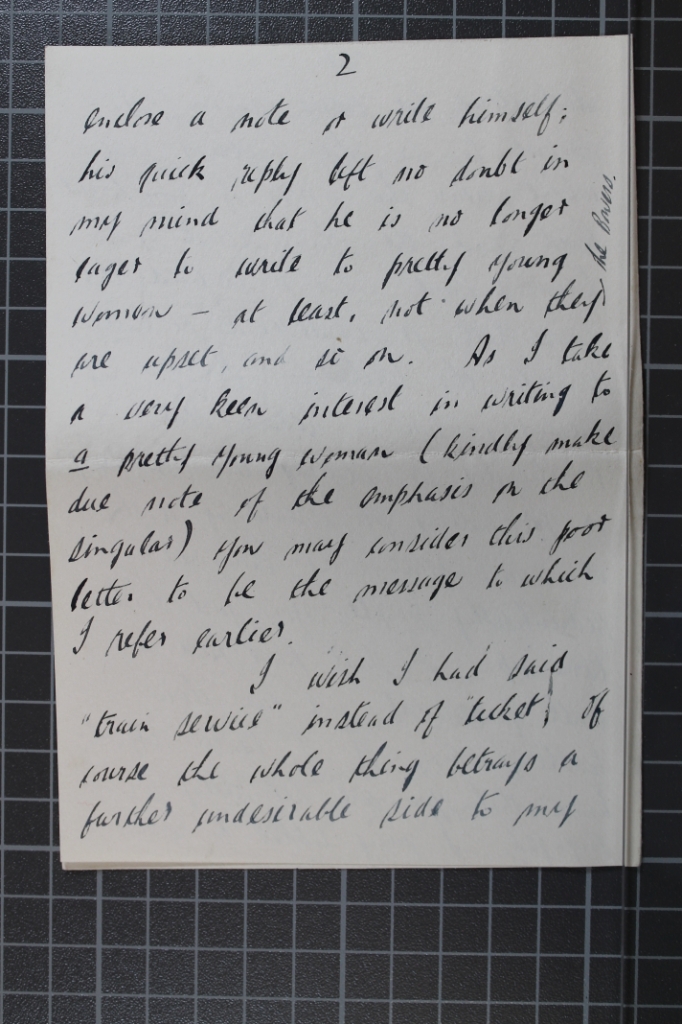 2
enclose a note or write himself;
his quick reply left no doubt in
my mind that he is no longer
eager to write to pretty young
women — at least, not when they
are upset, and so on. As I take
a very keen interest in writing to
a pretty young woman (kindly make
due note of the emphasis on the
singular) you may consider this poor
letter to be the message to which
I refer earlier.
I wish I had said
"train service" instead of "ticket", of
course the whole thing betrays a
further undesirable side to my
the